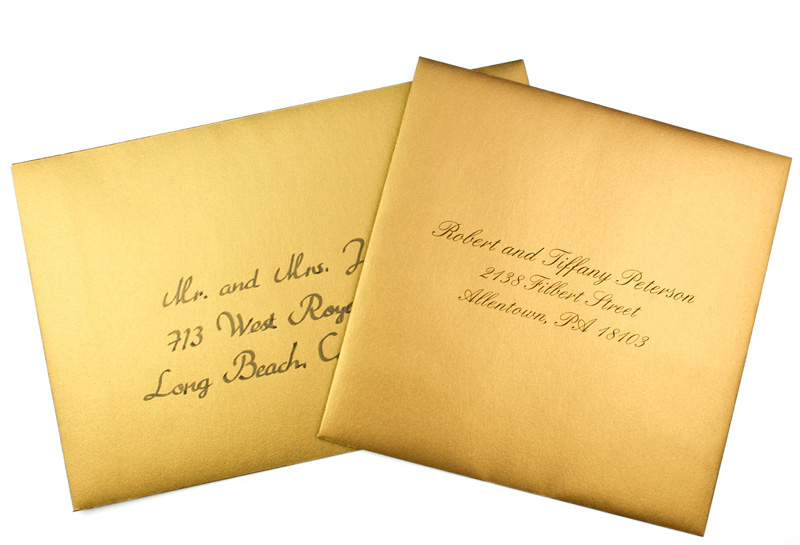 Mr. and Mrs.
713 West
Long Beach,
Robert and Tiffany Peterson
2138 Filbert Street
Allentown, PA 18103